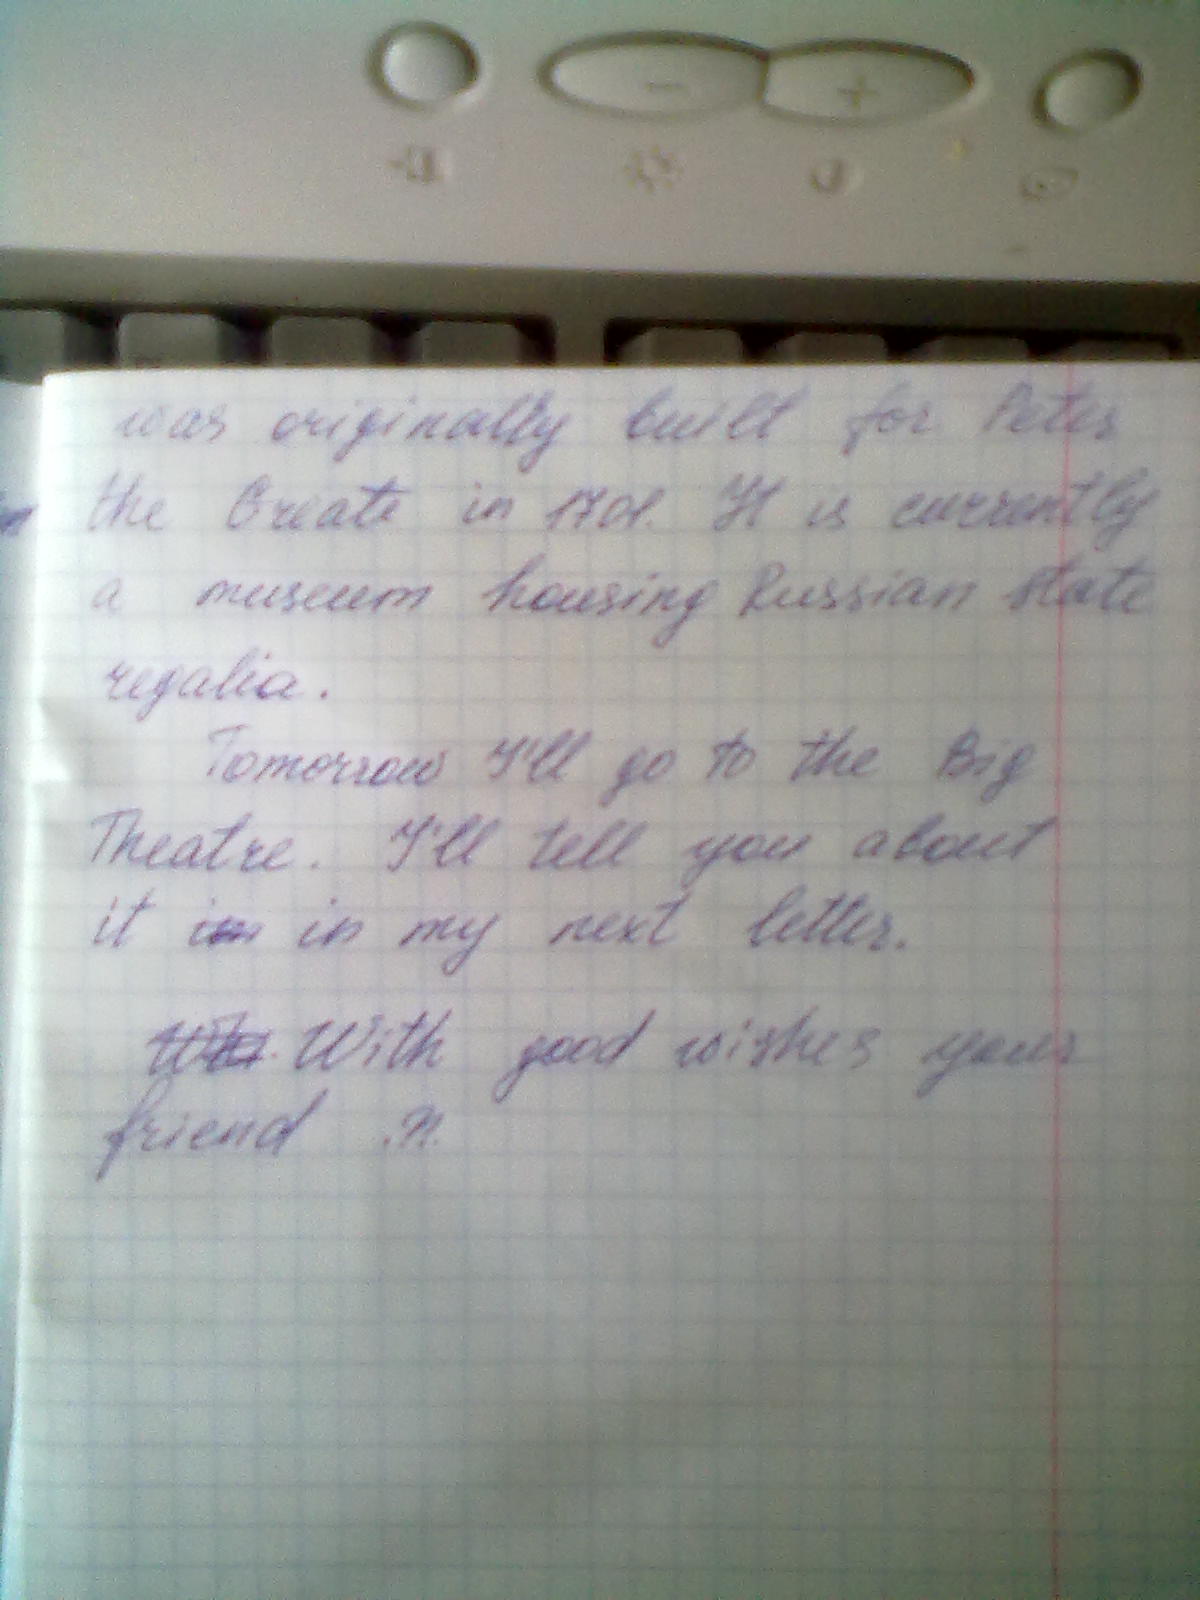 was originally built for Peter
the Greate in 1701. It is currently
a museum housing Russian state
regalia.
Tomorrow I'll go to the Big
Theatre. I'll tell you about
it in in my next letter.
With good wishes your
friend